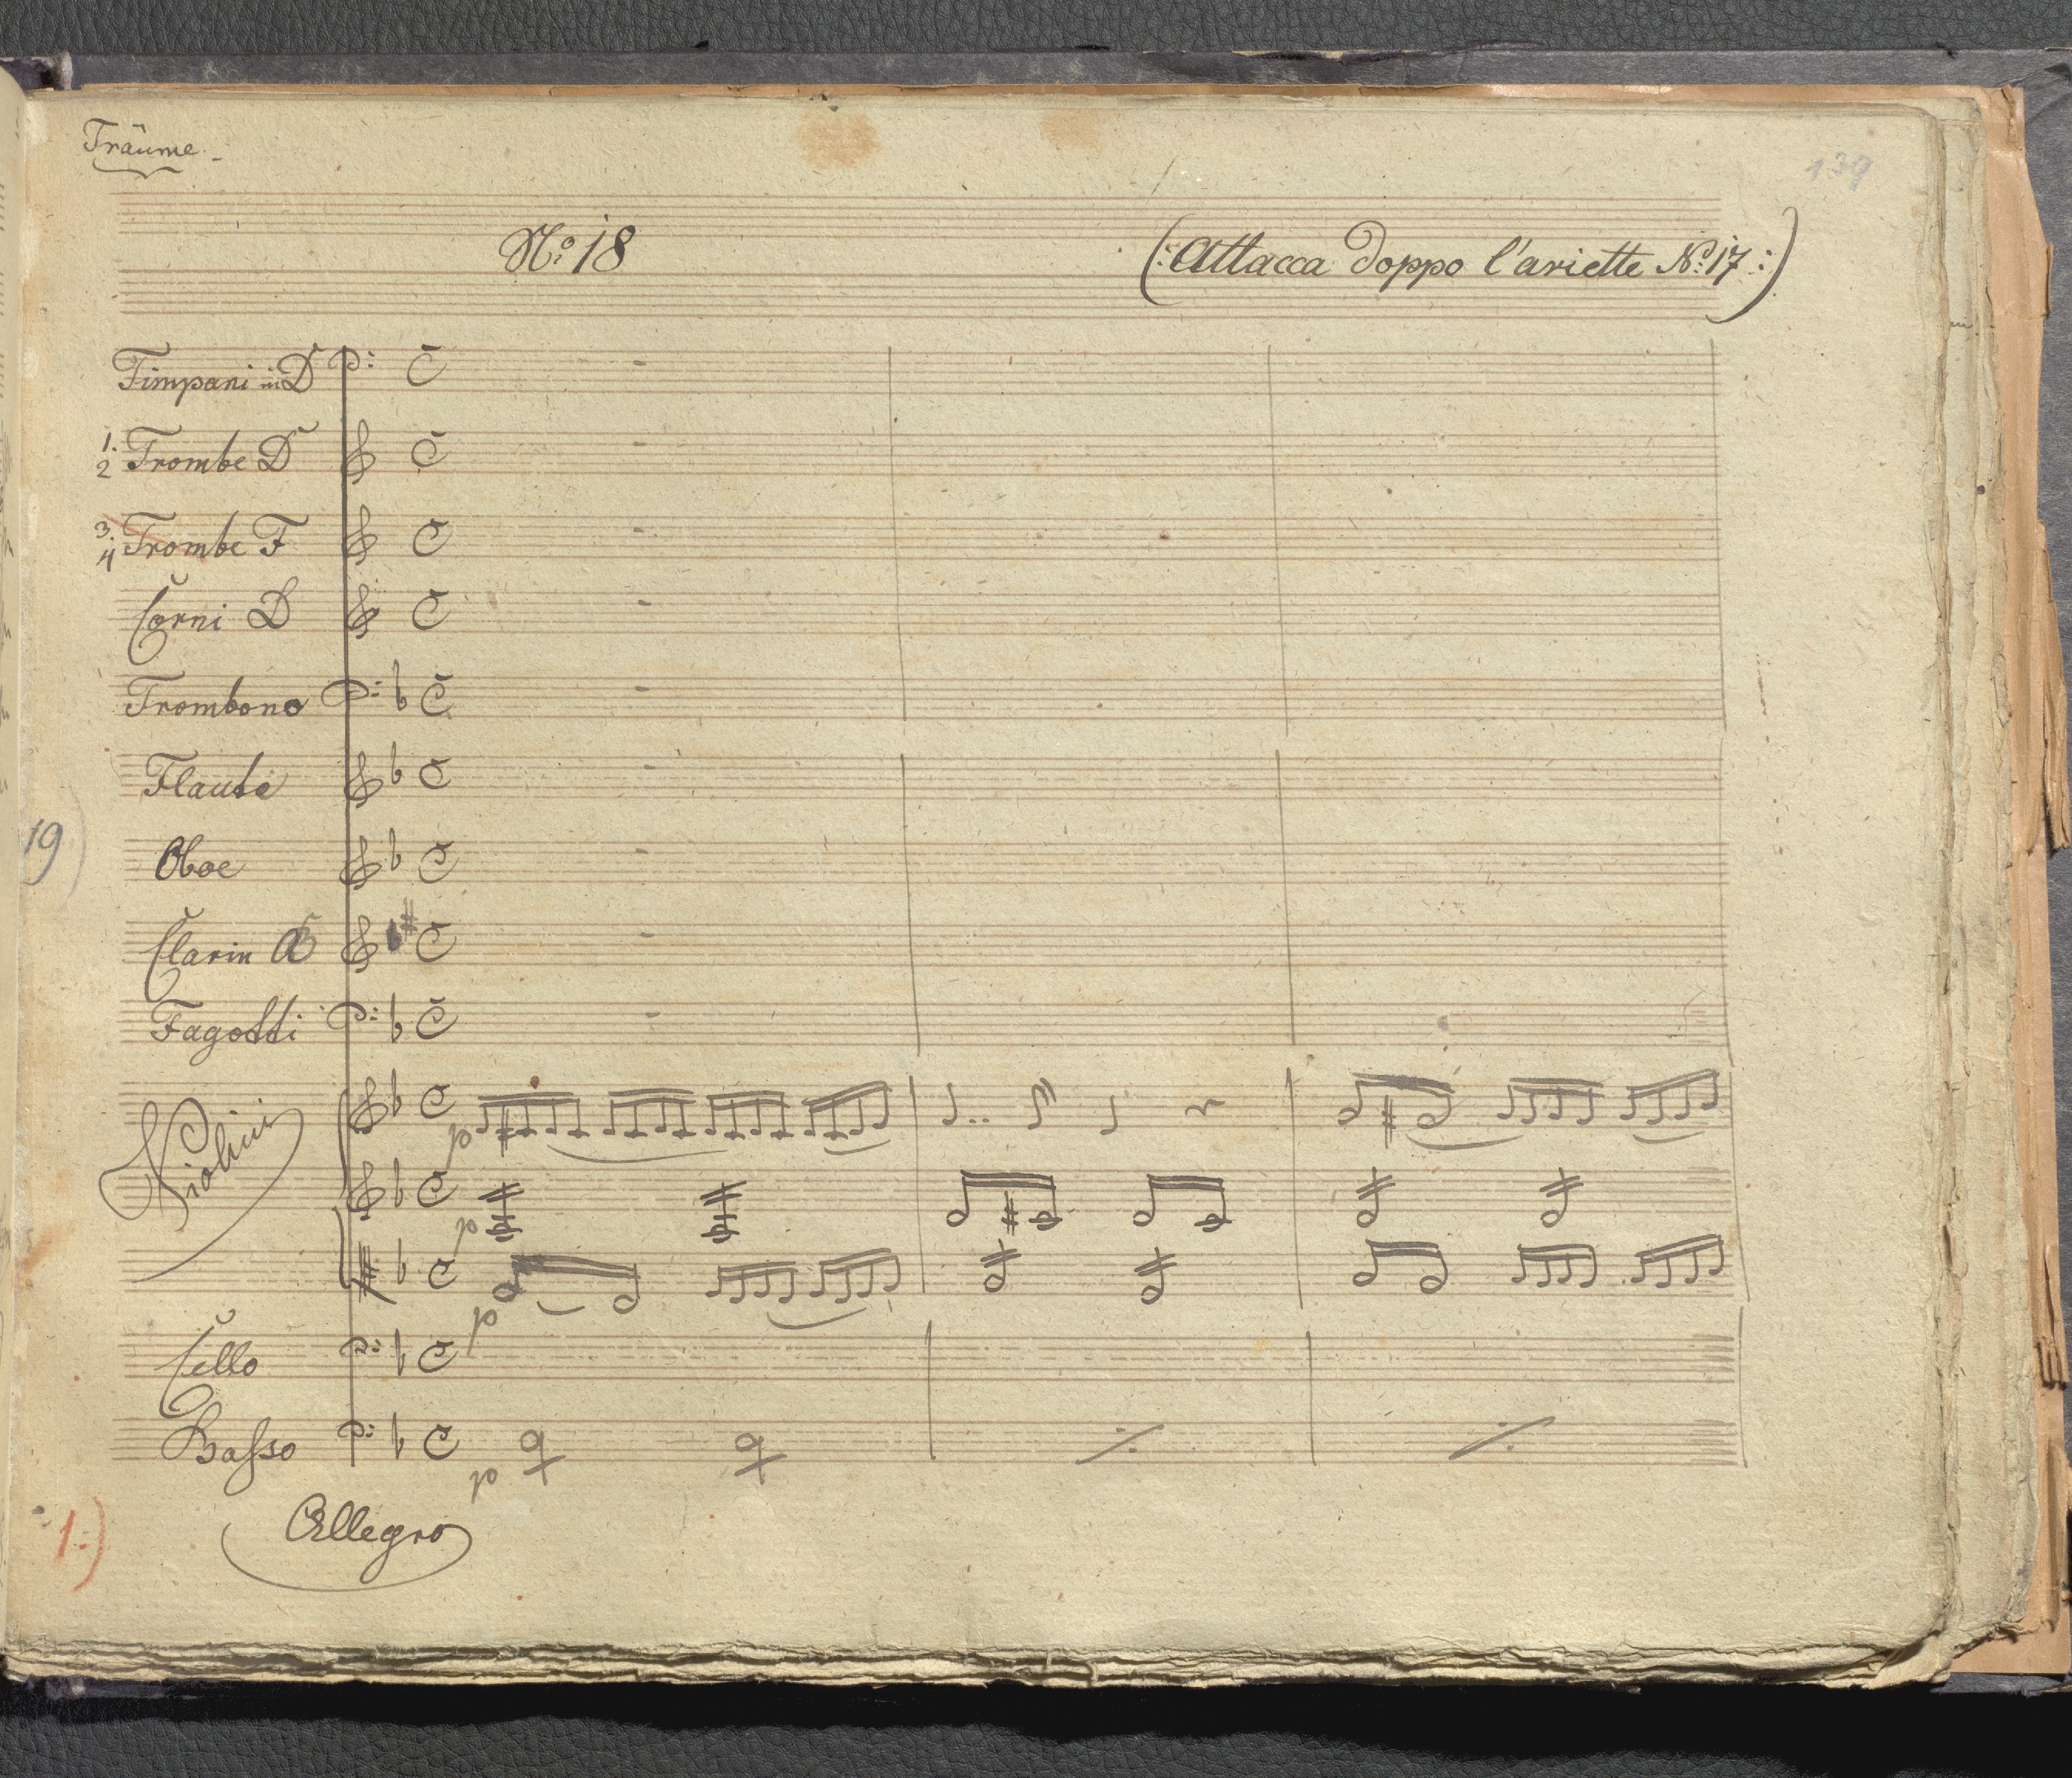 Träume.
139
No. 18
(: Attacca doppo l'ariette No. 17 :)
Timpani in D
1. 2 Trombe D
3. 4 Trombe F
Corni D
Trombono
Flaute
19)
Oboe
Clarin
Fagotti
Violini
p
p
p
Cello
Basso
p
1:)
Allegro